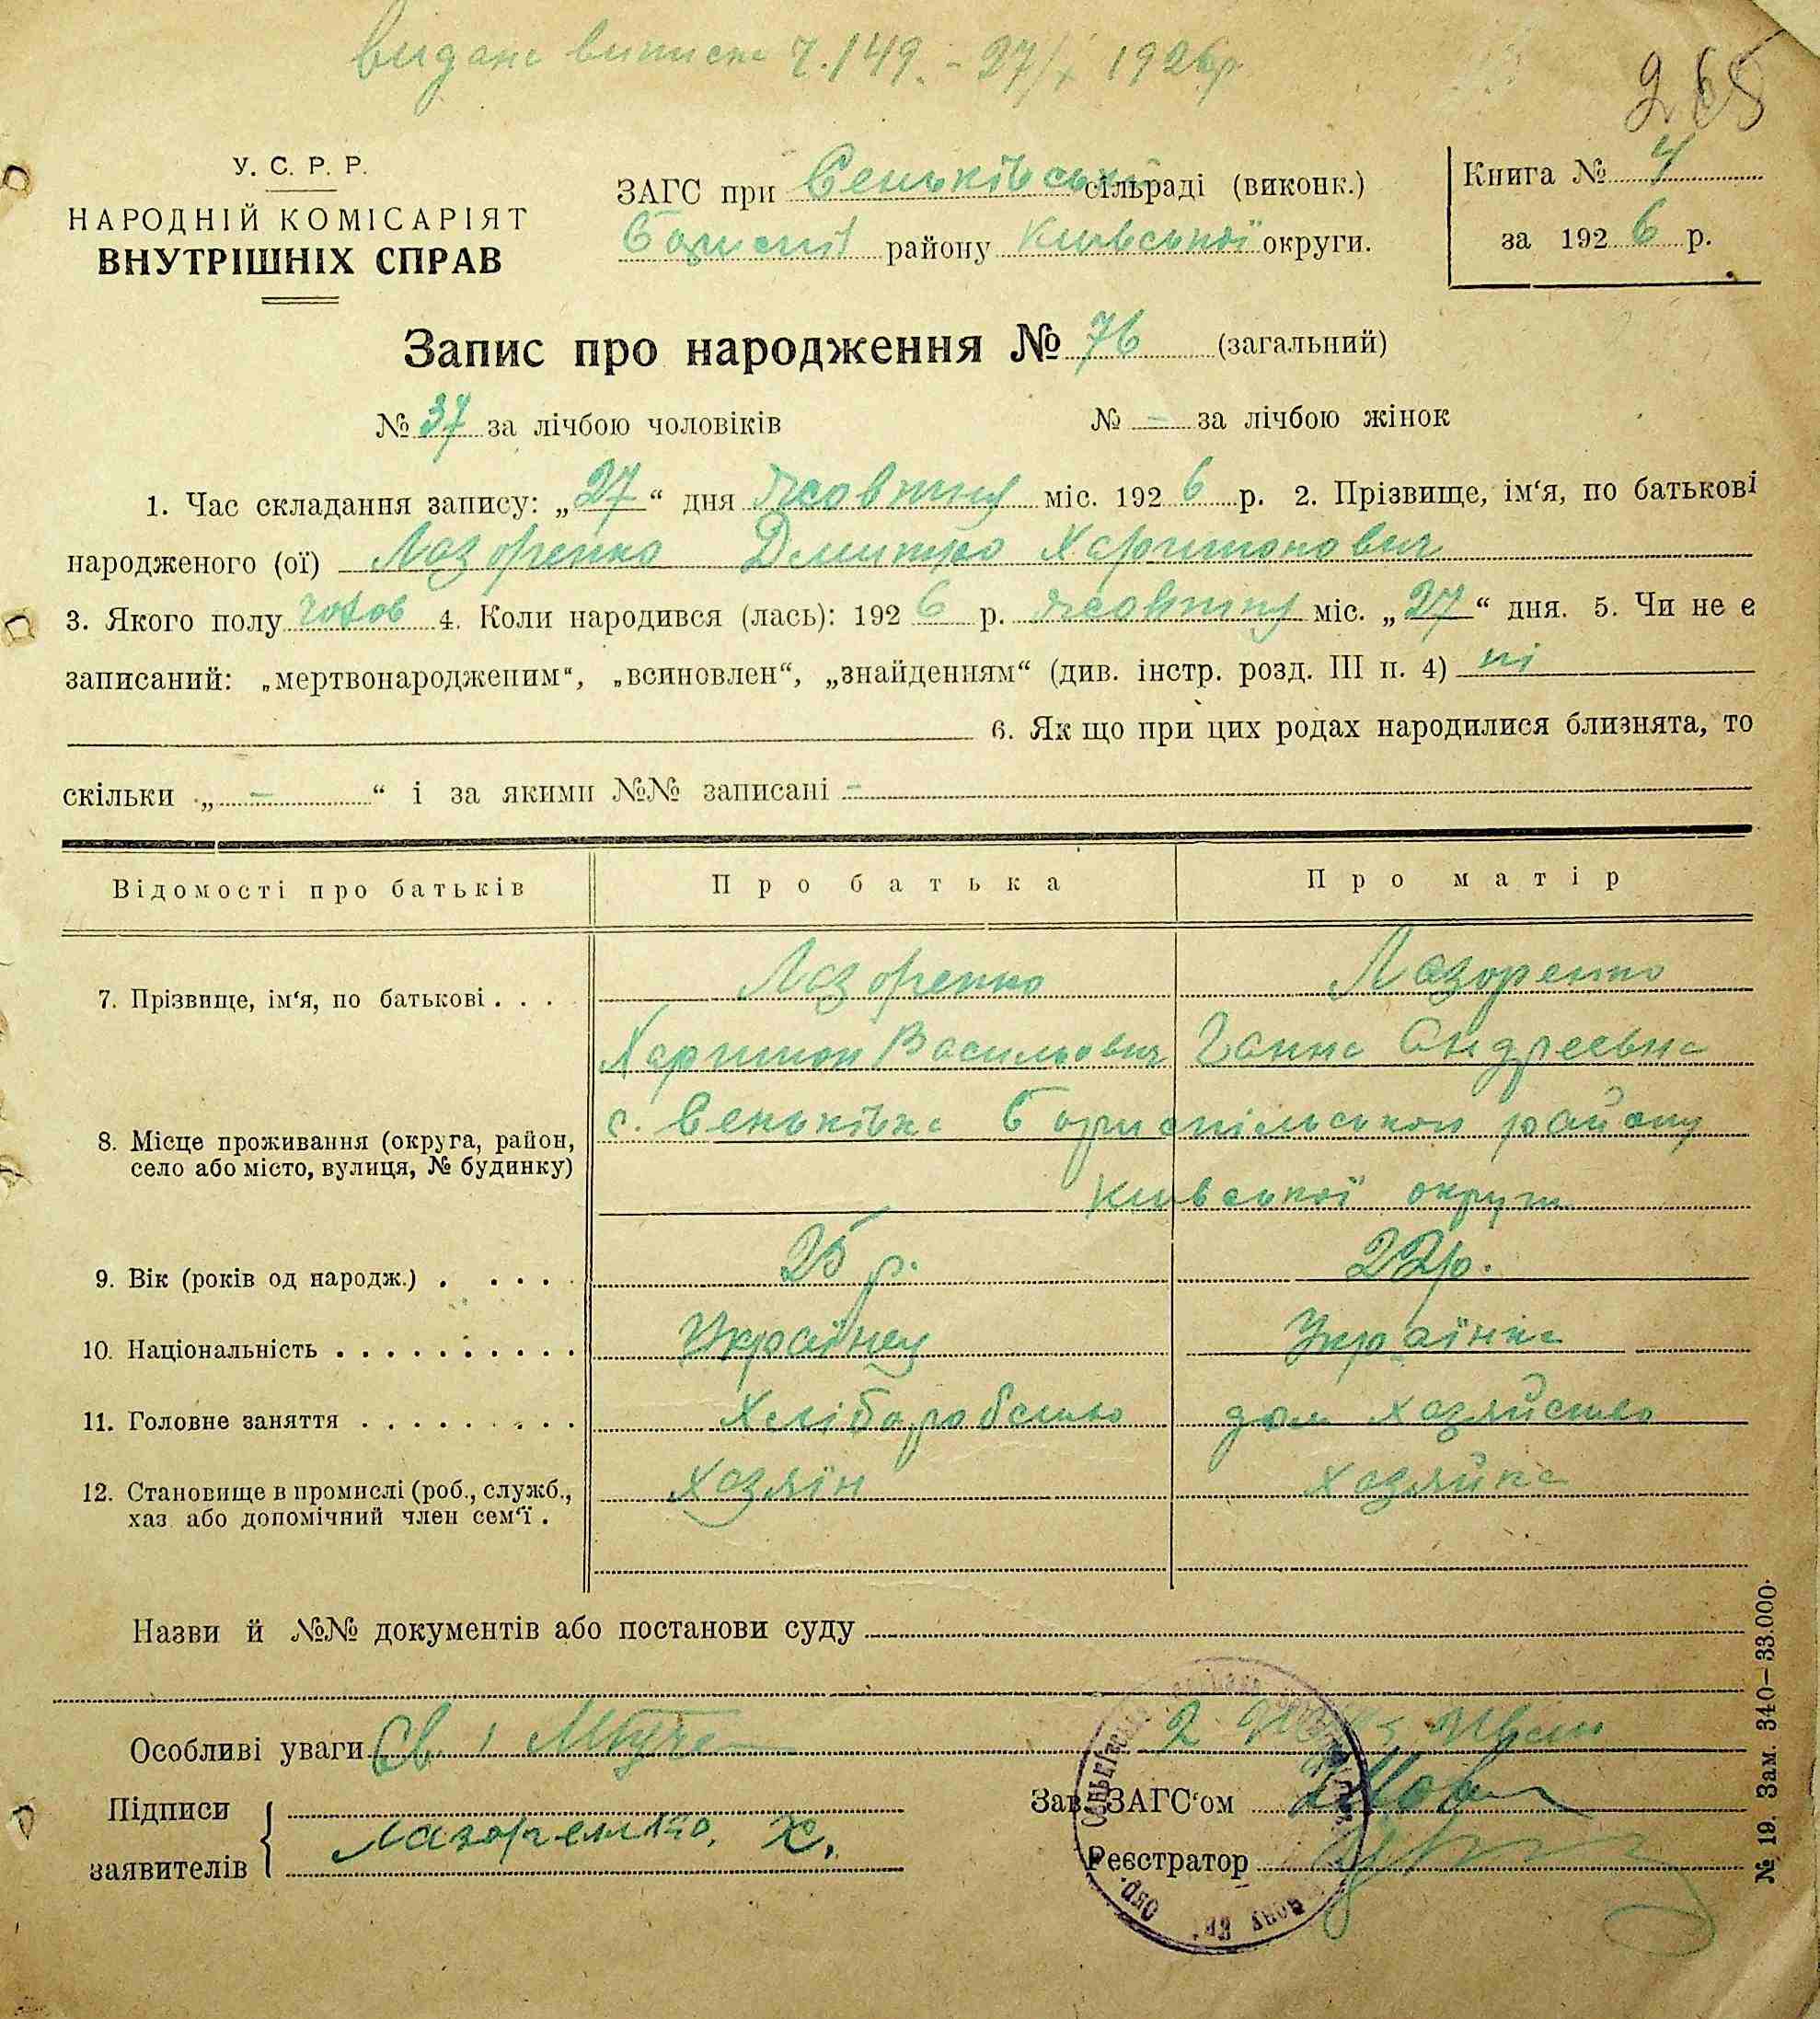 видане виписк ч. 149. - 27/X 1926 р
265
У. С. Р. Р.
НАРОДНІЙ КОМІСАРІЯТ
ВНУТРІШНІХ СПРАВ
ЗАГС при Сеньківській сільраді (виконк.)
району Київської округи.
Книга № 4
за 1926 р.
Запис про народження № 76 (загальний)
№ 37 за лічбою чоловіків № - за лічбою жінок
1. Час складання запису: „27“ дня жовтня міс. 1926 р. 2. Прізвище, ім‘я, по батькові
народженого (ої) Лазоренко Дмитро Харитонович
3. Якого полу чолов 4. Коли народився (лась): 1926 р. жовтня міс. „27“ дня. 5. Чи не є
записаний: „мертвонародженим“, „всиновлен“, „знайденням“ (див. інстр. розд. III п. 4) ні
6. Як що при цих родах народилися близнята, то
скільки „-“ і за якими №№ записані -
Відомості про батьків Про батька Про матір
7. Прізвище, ім‘я, по батькові . . . Лазоренко Лазоренко
Харитон Васильович Ганна Андреевна
с. Сеньківка Бориспільського району
8. Місце проживання (округа, район,
село або місто, вулиця, № будинку)
Київської округи
9. Вік (років од народж.) . . . . 25 р. 22 р.
10. Національність . . . . . . . . . . Українец Українка
11. Головне заняття . . . . . . . . . Хліборобство дом хазяйство
12. Становище в промислі (роб., служб., Хазяїн хазяйка
хаз. або допомічний член сем‘ї .
Назви й №№ документів або постанови суду
Особливі уваги
Підписи
заявителів Лазоренко. Х.
Зав. ЗАГС‘ом
Реєстратор
№ 19. Зам. 340—33.000.